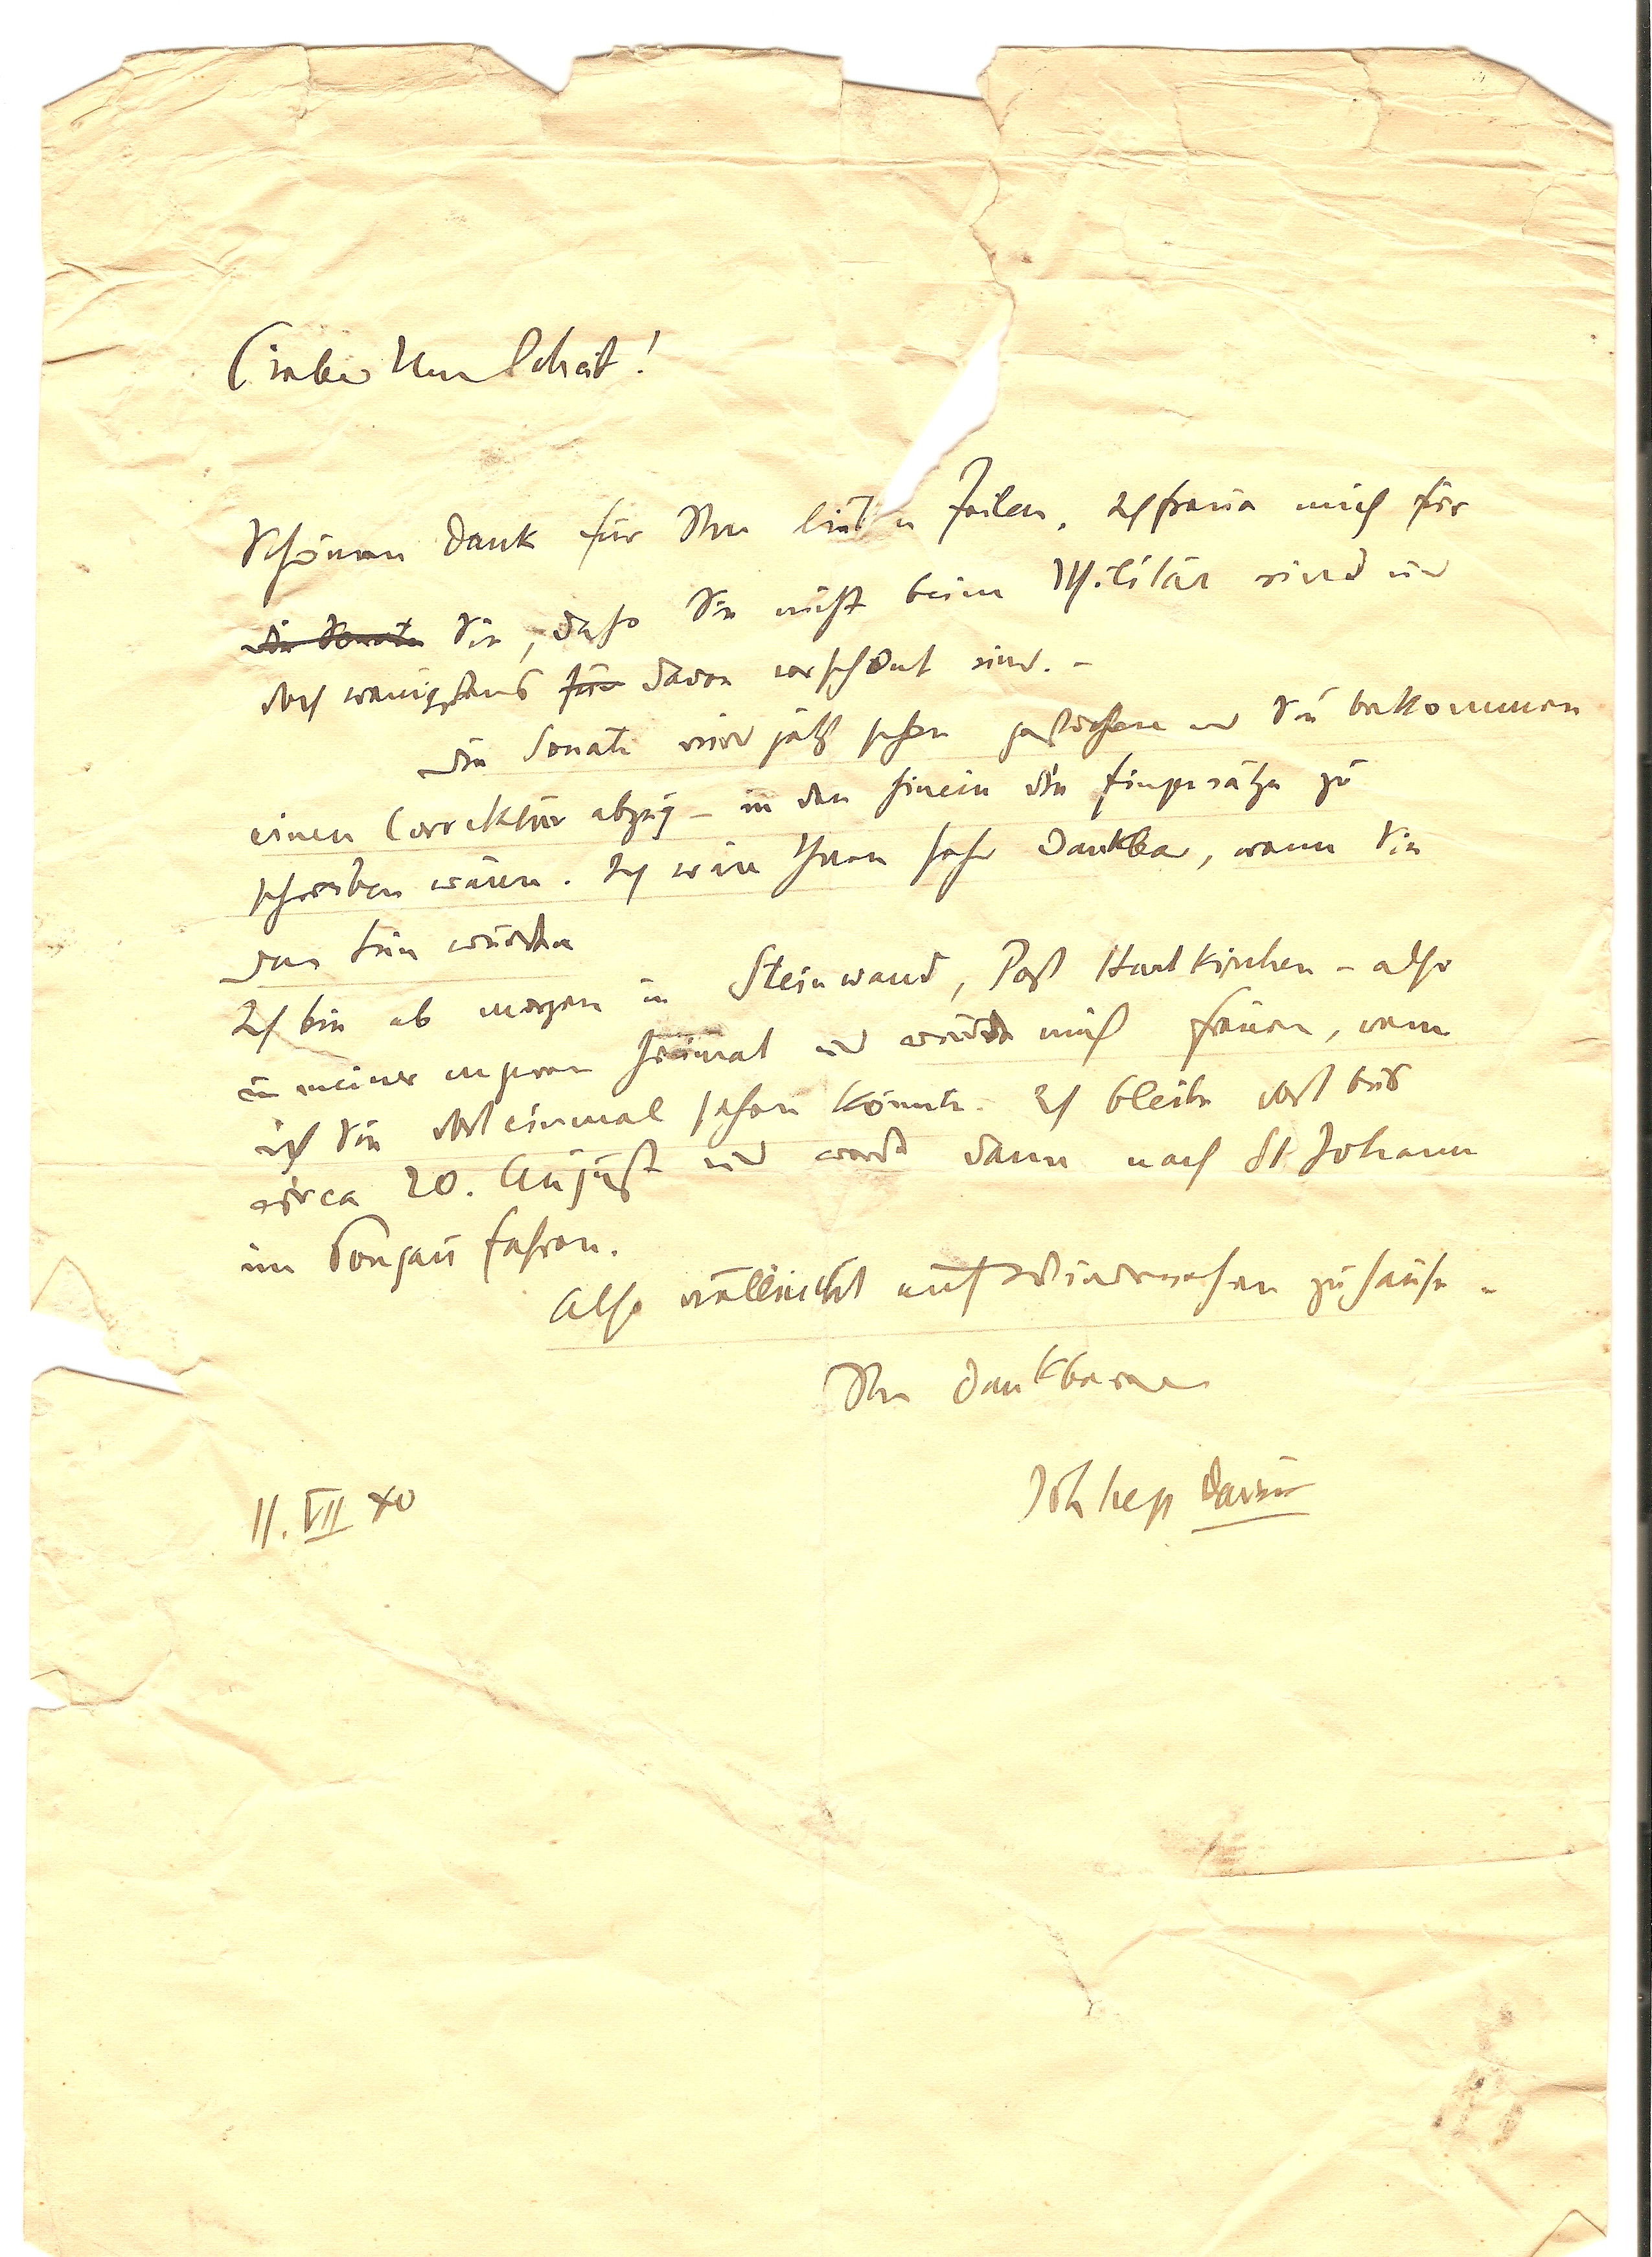 Lieber Herr Scheit!
Schönen Dank für Ihre lieben Zeilen. Ich freue mich für
die Sonate Sie, dass Sie nicht beim Militär sind und
doch wenigstens für davon verschont sind. –
Die Sonate wird jetzt schon gestochen und Sie bekommen
einen Correktur abzug – in den hinein die Fingersätze zu
schreiben wären. Ich wäre Ihnen sehr dankbar, wenn Sie
das tun würden
Ich bin ab morgen in Steinwand, Post Hartkirchen – also
in meiner engeren Heimat und würde mich freuen, wenn
ich Sie dort einmal sehen könnte. Ich bleibe dort bis
circa 20. August und werde dann nach St Johann
im Pongau fahren.
Also vielleicht auf Wiedersehen zuhause –
Ihr dankbarer
Joh Nep David
11. VII 40